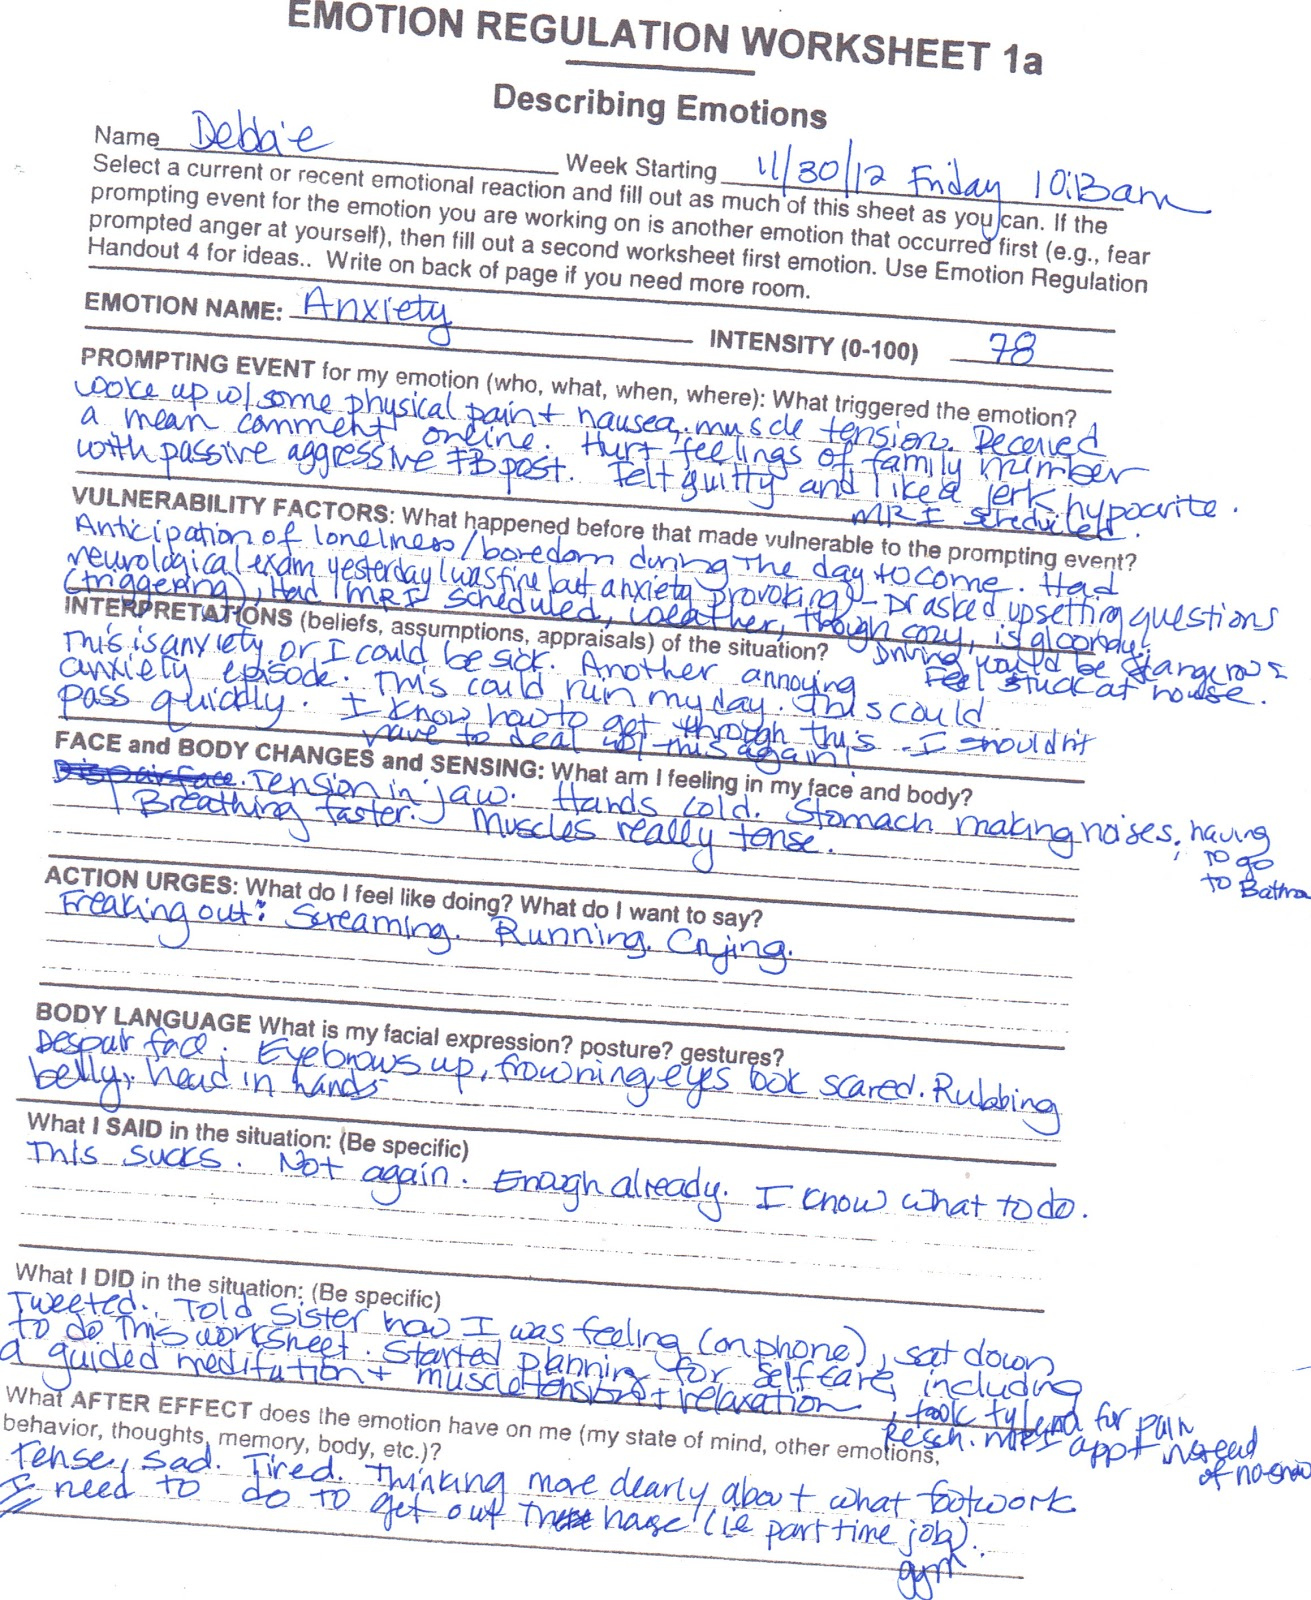 EMOTION REGULATION WORKSHEET 1a
Describing Emotions
Name Debbie Week Starting 11/30/12 Friday 10:13am
Select a current or recent emotional reaction and fill out as much of this sheet as you can. If the
prompting event for the emotion you are working on is another emotion that occurred first (e.g., fear
prompted anger at yourself), then fill out a second worksheet first emotion. Use Emotion Regulation
Handout 4 for ideas.. Write on back of page if you need more room.
EMOTION NAME: Anxiety INTENSITY (0-100) 78
PROMPTING EVENT for my emotion (who, what, when, where): What triggered the emotion?
woke up w/some physical pain + nausea, muscle tension. Received
a mean comment online. Hurt feelings of family member
with passive aggressive FB post. Felt guilty and like a jerk hypocrite.
MRI scheduled.
VULNERABILITY FACTORS: What happened before that made vulnerable to the prompting event?
Anticipation of loneliness/boredom during the day to come. Had
neurological exam yesterday (was fine but anxiety provoking) - Dr asked upsetting questions
(triggering), Had MRI scheduled, weather, though cozy, is gloomy.
Driving would be dangerous
Feel stuck at house.
INTERPRETATIONS (beliefs, assumptions, appraisals) of the situation?
This is anxiety or I could be sick. Another annoying
anxiety episode. This could ruin my day. This could
pass quickly. I know how to get through this. I shouldn't
have to deal w/ this again!
FACE and BODY CHANGES and SENSING: What am I feeling in my face and body?
Despair face. Tension in jaw. Hands cold. Stomach making noises, having
to go
to Bathrm
Breathing faster. Muscles really tense.
ACTION URGES: What do I feel like doing? What do I want to say?
Freaking out. Screaming. Running. Crying.
BODY LANGUAGE What is my facial expression? posture? gestures?
Despair face. Eyebrows up, frowning, eyes look scared. Rubbing
belly, head in hands
What I SAID in the situation: (Be specific)
This sucks. Not again. Enough already. I know what to do.
What I DID in the situation: (Be specific)
Tweeted. Told sister how I was feeling (on phone), sat down
to do this worksheet. Started planning for selfcare, including
a guided meditation + muscle tension + relaxation, took tylenol for pain
Resch. MRI appt instead
of no-show
What AFTER EFFECT does the emotion have on me (my state of mind, other emotions,
behavior, thoughts, memory, body, etc.)?
Tense, sad. Tired. Thinking more clearly about what footwork
I need to do to get out the house (ie part time job).
gym